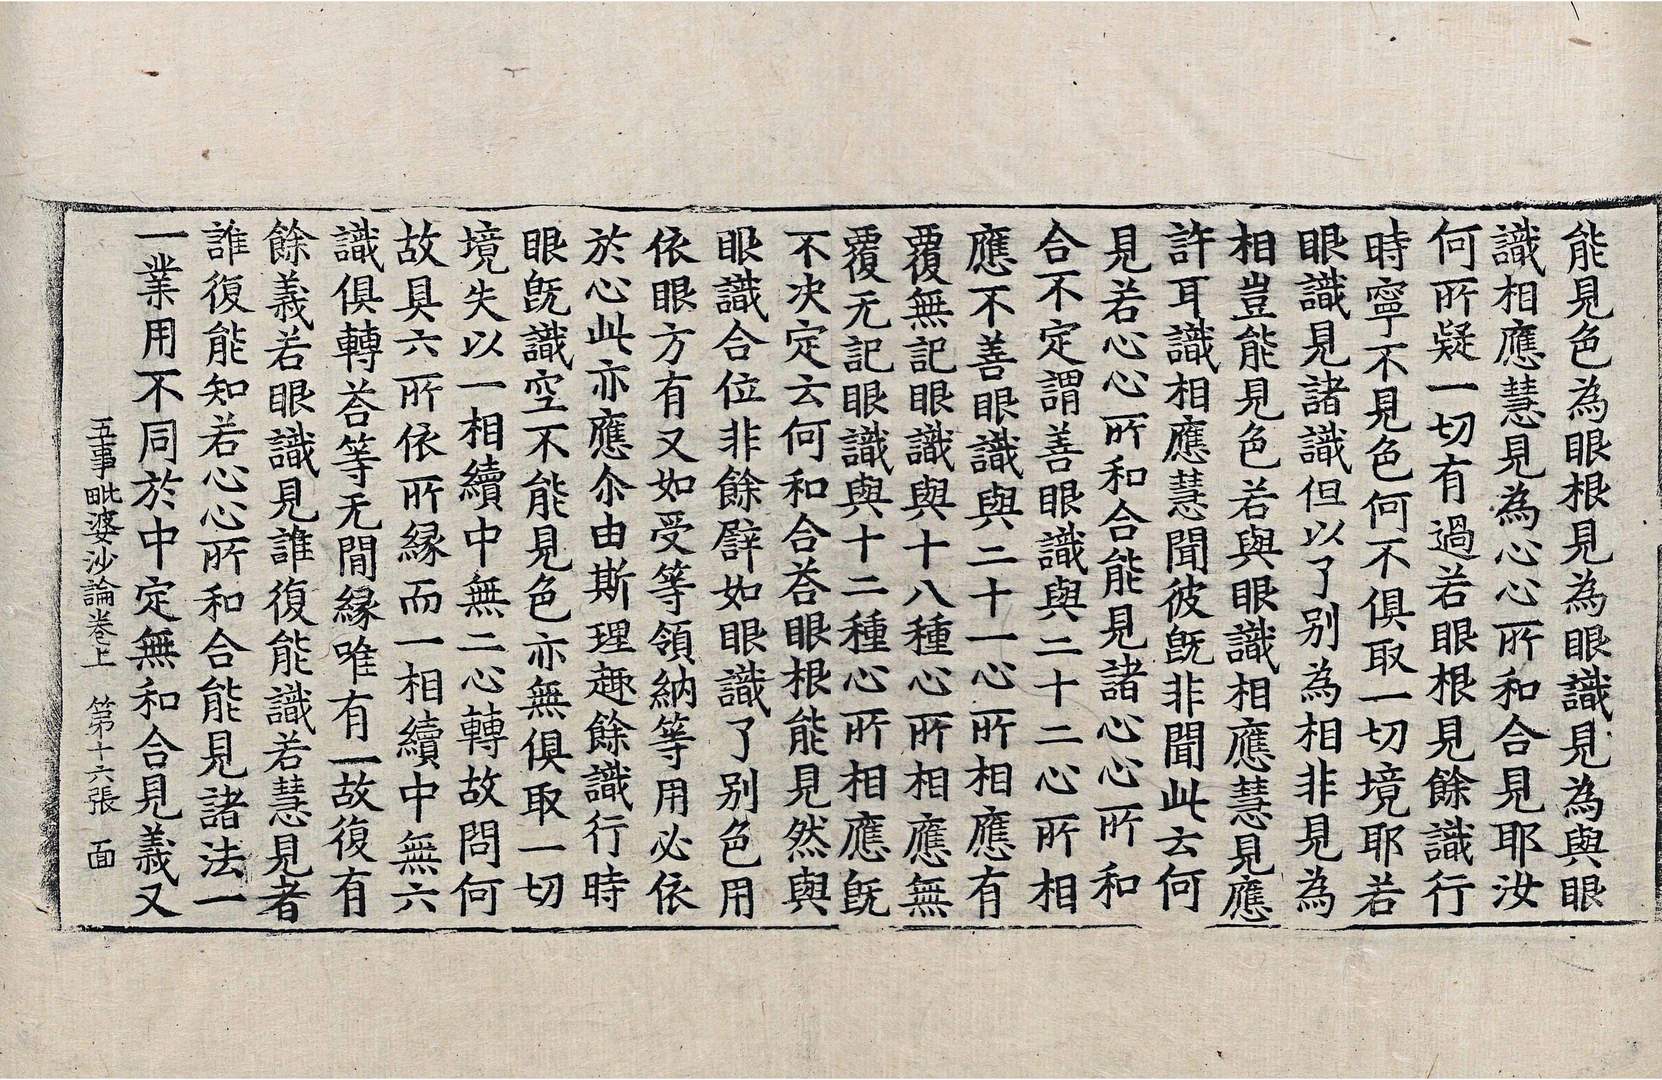 能見色為眼根見為眼識見為與眼
識相應慧見為心心所和合見耶汝
何所疑一切有過若眼根見餘識行
時寧不見色何不俱取一切境耶若
眼識見諸識但以了別為相非見為
相豈能見色若與眼識相應慧見應
許耳識相應慧聞彼旣非聞此云何
見若心心所和合能見諸心心所和
合不定謂善眼識與二十二心所相
應不善眼識與二十一心所相應有
覆無記眼識與十八種心所相應無
覆无記眼識與十二種心所相應旣
不决定云何和合荅眼根能見然與
眼識合位非餘譬如眼識了別色用
依眼方有又如受等領納等用必依
於心此亦應尒由斯理趣餘識行時
眼旣識空不能見色亦無俱取一切
境失以一相續中無二心轉故問何
故具六所依所縁而一相續中無六
識俱轉荅等无閒縁唯有一故復有
餘義若眼識見誰復能識若慧見者
誰復能知若心心所和合能見諸法一
一業用不同於中定無和合見義又
五事毗婆沙論卷上 第十六張 面